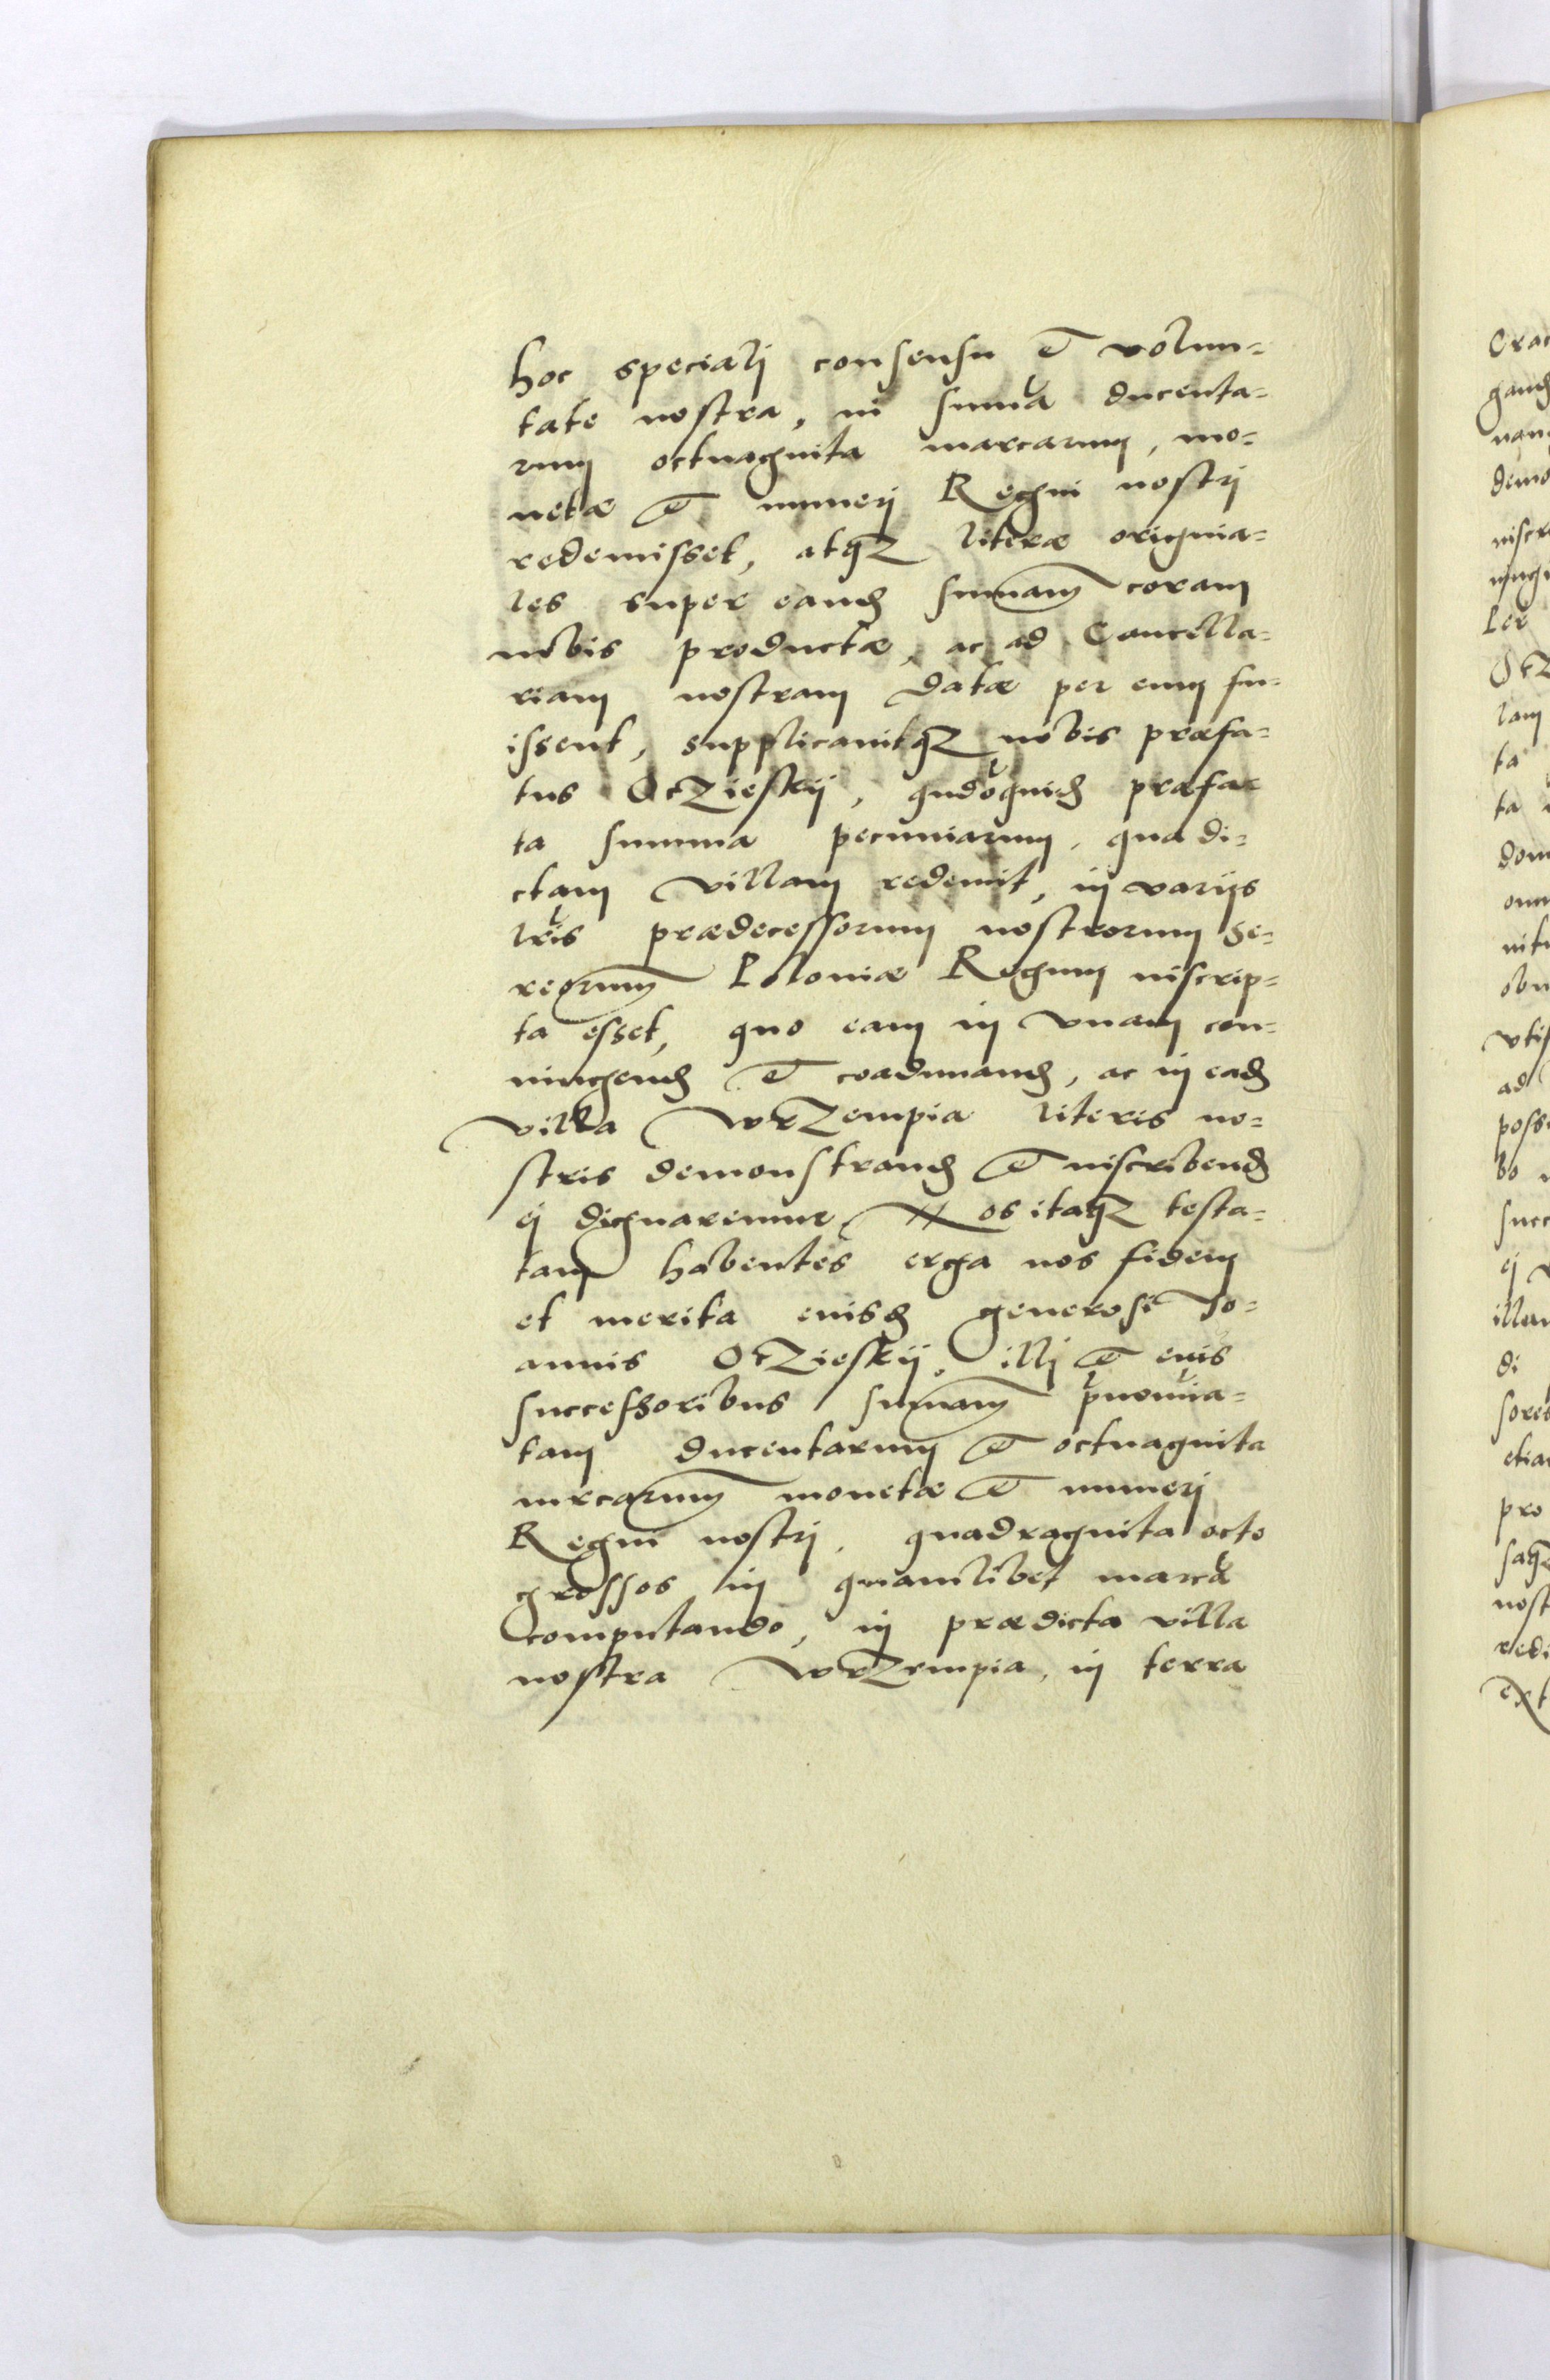 hoc specialj consensu et volun=
tate nostra, in suma ducenta=
rum octuaginta marcarum, mo=
netæ et numerj Regni nostrj
redemisset, atq₃ literæ origina=
les super eand sumam coram
nobis productæ, ac ad Cancella=
riam nostram datæ per eum fu=
issent, supplicauitq₃ nobis præfa=
tus OcZieskij, qndoquid præfa=
ta summa pecuniarum, qua di=
ctam villam redemit, in varijs
lris prædecessorum nostrorum Se=
reorum Poloniæ Regum inscrip=
ta esset, quo eam in vnam con=
iungend et coadunand, ac in ead
villa WrZempia literis no=
stris demonstrand et inscribend
ej dignaremur. Nos itaq₃ testa=
tam habentes erga nos fidem
et merita euisd generosi Io=
annis OcZieskij, illj et euis
successoribus sumam pnomia=
tam ducentarum et octuaginta
mrcarum monetæ et numerj
Regni nostrj, quadraginta octo
grossos in quamlibet marca
computando, in prædicta villa
nostra WrZempia, in terra